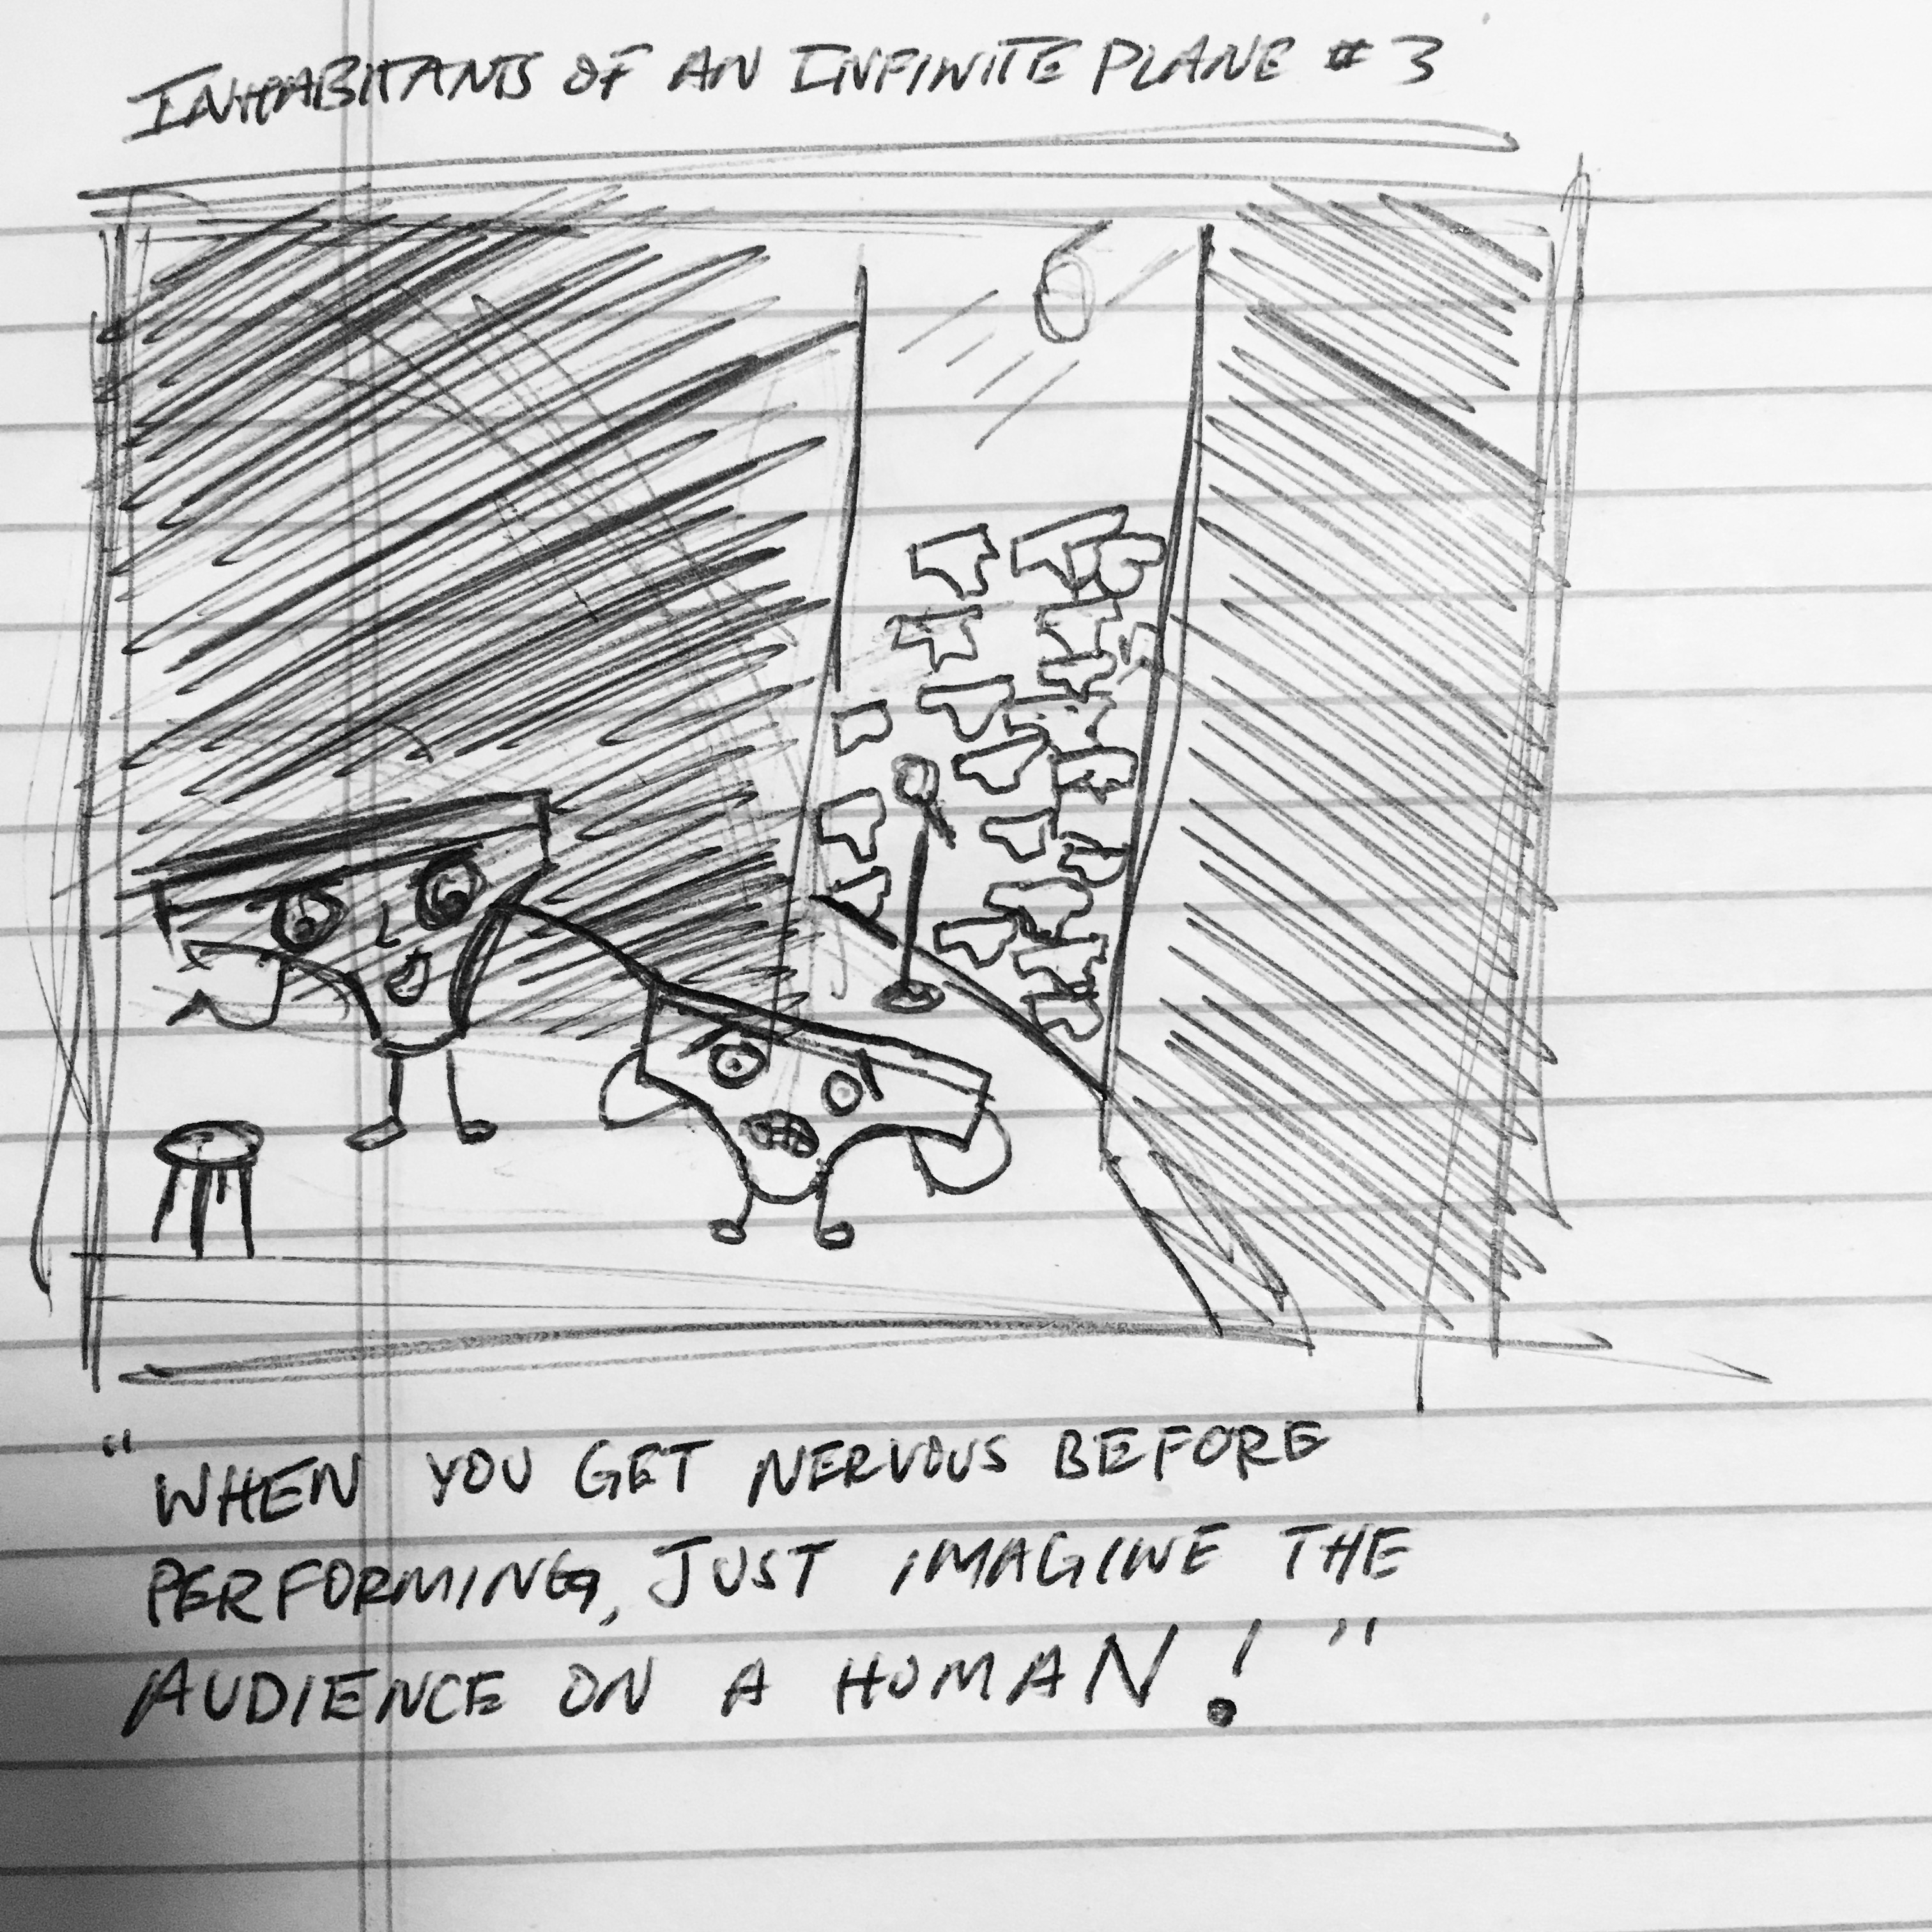 INHABITANTS OF AN INFINITE PLANE #3
"WHEN YOU GET NERVOUS BEFORE
PERFORMING, JUST IMAGINE THE
AUDIENCE ON A HUMAN!"